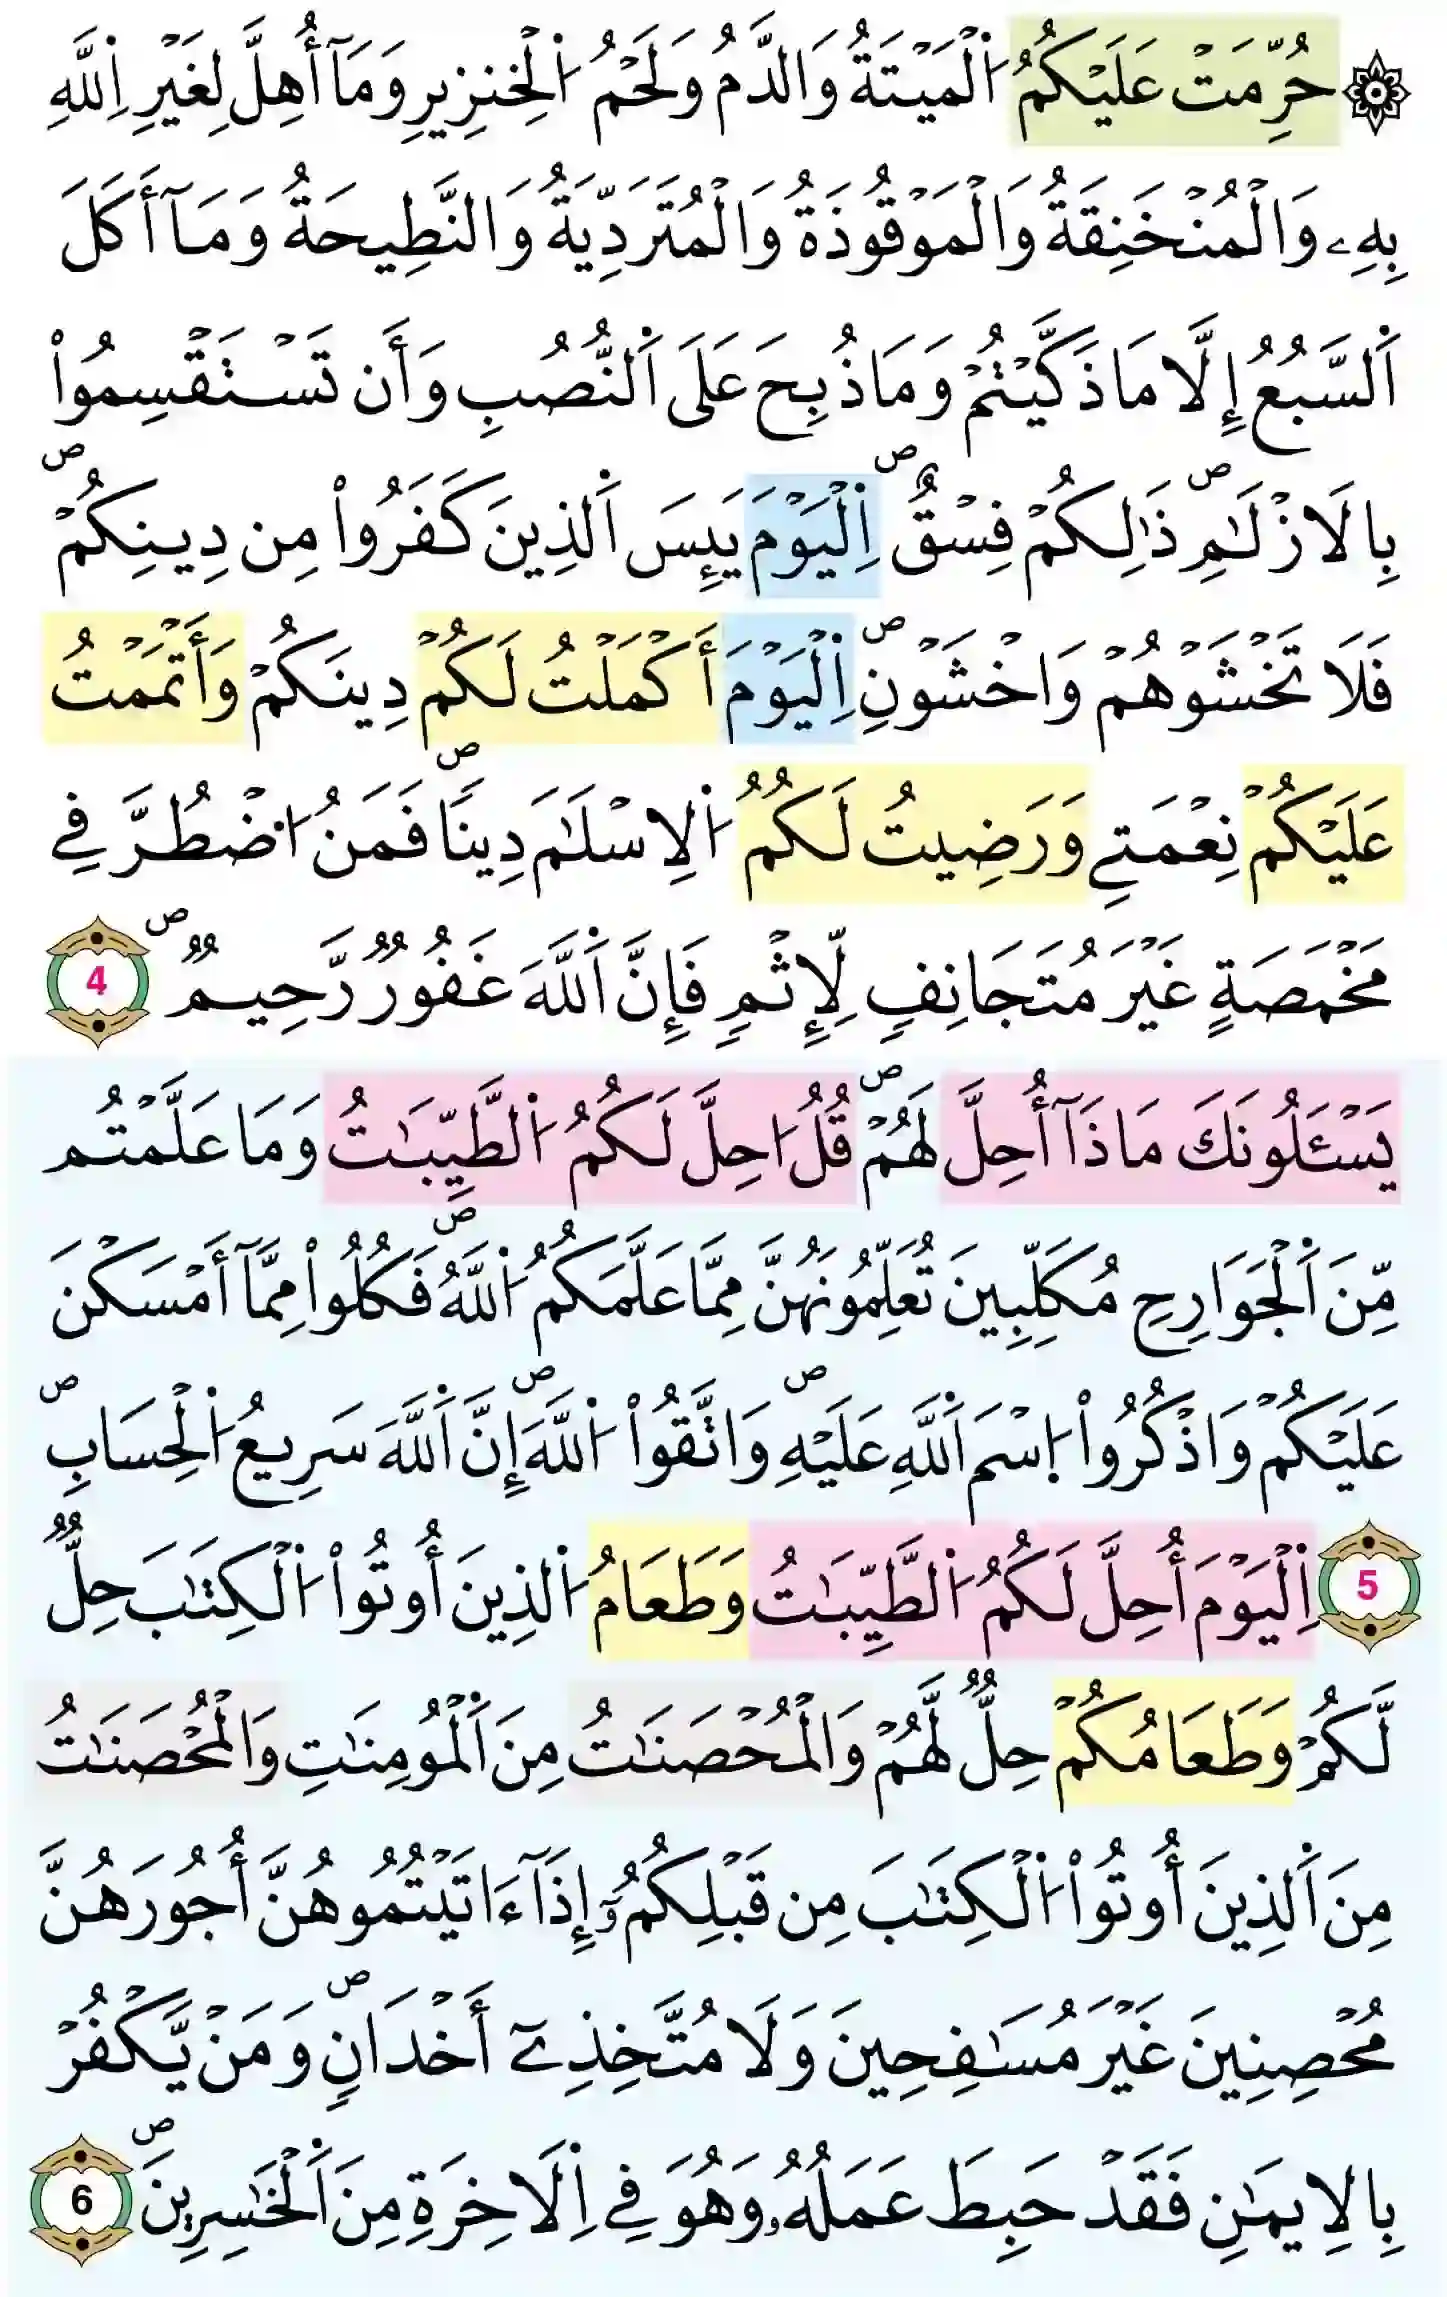 ۞ حُرِّمَتْ عَلَيْكُمُ اُ۬لْمَيْتَةُ وَالدَّمُ وَلَحْمُ اُ۬لْخِنزِيرِ وَمَآ أُهِلَّ لِغَيْرِ اِ۬للَّهِ
بِهِۦ وَالْمُنْخَنِقَةُ وَالْمَوْقُوذَةُ وَالْمُتَرَدِّيَةُ وَالنَّطِيحَةُ وَمَآ أَكَلَ
اَ۬لسَّبُعُ إِلَّا مَا ذَكَّيْتُمْ وَمَا ذُبِحَ عَلَى اَ۬لنُّصُبِ وَأَن تَسْتَقْسِمُواْ
بِالَازْلَٰمِۖ ذَٰلِكُمْ فِسْقٌۖ اِ۬لْيَوْمَ يَئِسَ اَ۬لذِينَ كَفَرُواْ مِن دِينِكُمْۖ
فَلَا تَخْشَوْهُمْ وَاخْشَوْنِۖ اِ۬لْيَوْمَ أَكْمَلْتُ لَكُمْ دِينَكُمْ وَأَتْمَمْتُ
عَلَيْكُمْ نِعْمَتِے وَرَضِيتُ لَكُمُ اُ۬لِاسْلَٰمَ دِيناٗۖ فَمَنُ اُ۟ضْطُرَّ فِے
مَخْمَصَةٍ غَيْرَ مُتَجَانِفٖ لِّإِثْمٖ فَإِنَّ اَ۬للَّهَ غَفُورٞ رَّحِيمٞۖ 4
يَسْـَٔلُونَكَ مَاذَآ أُحِلَّ لَهُمْۖ قُلُ ا۟حِلَّ لَكُمُ اُ۬لطَّيِّبَٰتُ وَمَا عَلَّمْتُم
مِّنَ اَ۬لْجَوَارِحِ مُكَلِّبِينَ تُعَلِّمُونَهُنَّ مِمَّا عَلَّمَكُمُ اُ۬للَّهُۖ فَكُلُواْ مِمَّآ أَمْسَكْنَ
عَلَيْكُمْ وَاذْكُرُواْ اُ۪سْمَ اَ۬للَّهِ عَلَيْهِۖ وَاتَّقُواْ اُ۬للَّهَۖ إِنَّ اَ۬للَّهَ سَرِيعُ اُ۬لْحِسَابِۖ
5 اِ۬لْيَوْمَ أُحِلَّ لَكُمُ اُ۬لطَّيِّبَٰتُ وَطَعَامُ اُ۬لذِينَ أُوتُواْ اُ۬لْكِتَٰبَ حِلّٞ
لَّكُمْ وَطَعَامُكُمْ حِلّٞ لَّهُمْ وَالْمُحْصَنَٰتُ مِنَ اَ۬لْمُومِنَٰتِ وَالْمُحْصَنَٰتُ
مِنَ اَ۬لذِينَ أُوتُواْ اُ۬لْكِتَٰبَ مِن قَبْلِكُمُۥٓ إِذَآ ءَاتَيْتُمُوهُنَّ أُجُورَهُنَّ
مُحْصِنِينَ غَيْرَ مُسَٰفِحِينَ وَلَا مُتَّخِذِےٓ أَخْدَانٖۖ وَمَنْ يَّكْفُرْ
بِالِايمَٰنِ فَقَدْ حَبِطَ عَمَلُهُۥ وَهُوَ فِے اِ۬لَاخِرَةِ مِنَ اَ۬لْخَٰسِرِينَۖ 6